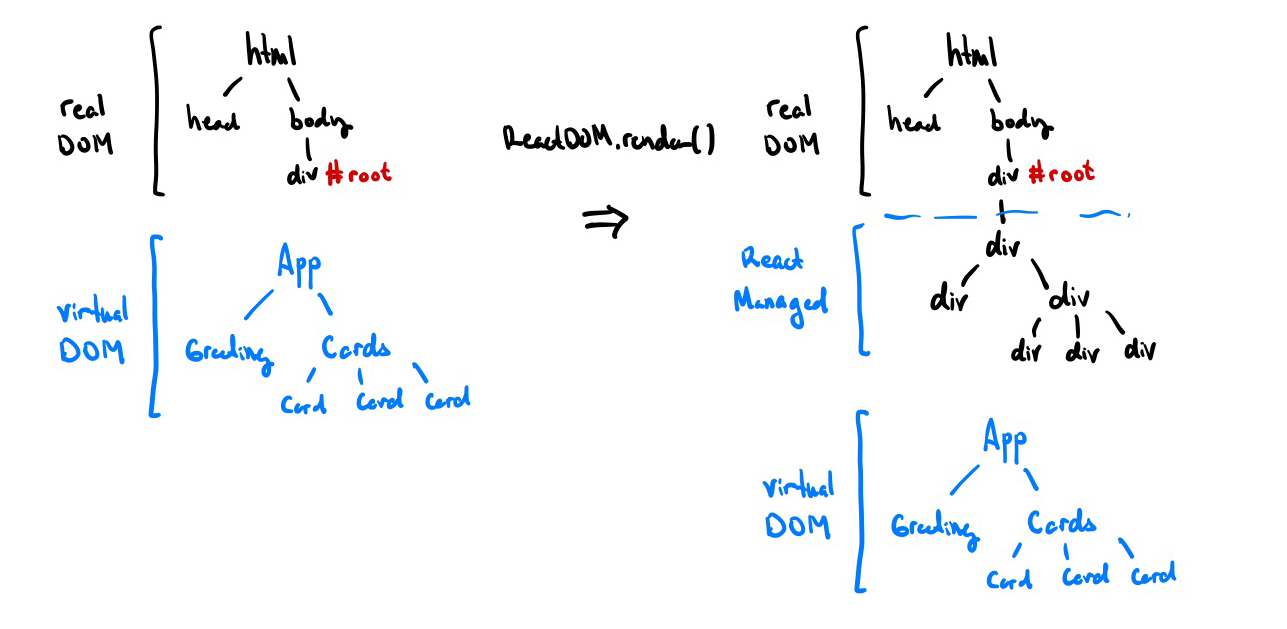 html
real
DOM
head body
div #root
Virtual
DOM
App
Greeting Cards
Card Card Card
ReactDOM.render()
⇒
html
real
DOM
head body
div #root
React
Managed
div
div div
div div div
Virtual
DOM
App
Greeting Cards
Card Card Card